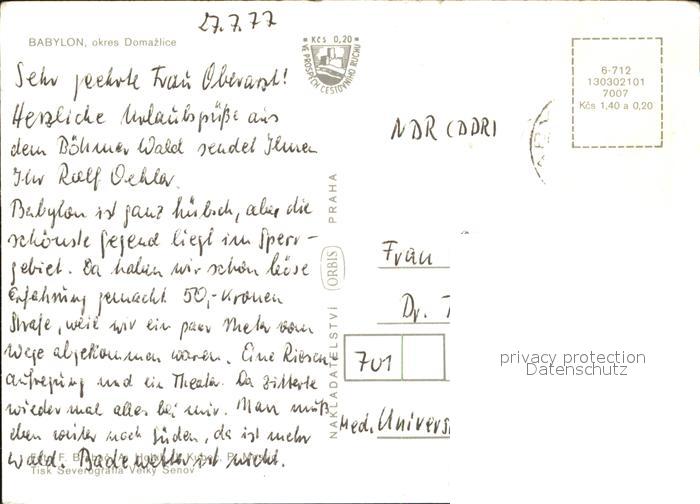 27.7.77
BABYLON, okres Domažlice
★ Kčs 0,20 ★
VE PROSPĚCH CESTOVNÍHO RUCHU
6-712
130302101
7007
Kčs 1,40 a 0,20
Sehr geehrte Frau Oberarzt!
Herzliche Urlaubsgrüße aus
dem Böhmer Wald sendet Ihnen
Ihr Ralf Oehler.
Babylon ist ganz hübsch, aber die
schönste Gegend liegt im Sperr-
gebiet. Da haben wir schon böse
Erfahrung gemacht. 50,- Kronen
Strafe, weil wir ein paar Meter vom
Wege abgekommen waren. Eine Riesen-
aufregung und ein Theater. Da zitterte
wieder mal alles bei mir. Man muß
eben weiter nach Süden, da ist mehr
Wald. Badewetter ist nicht.
Tisk Severografia Velký Šenov
NAKLADATELSTVÍ ORBIS PRAHA
NDR (DDR)
Frau
Dr. T
701
Med. Univers
privacy protection
Datenschutz